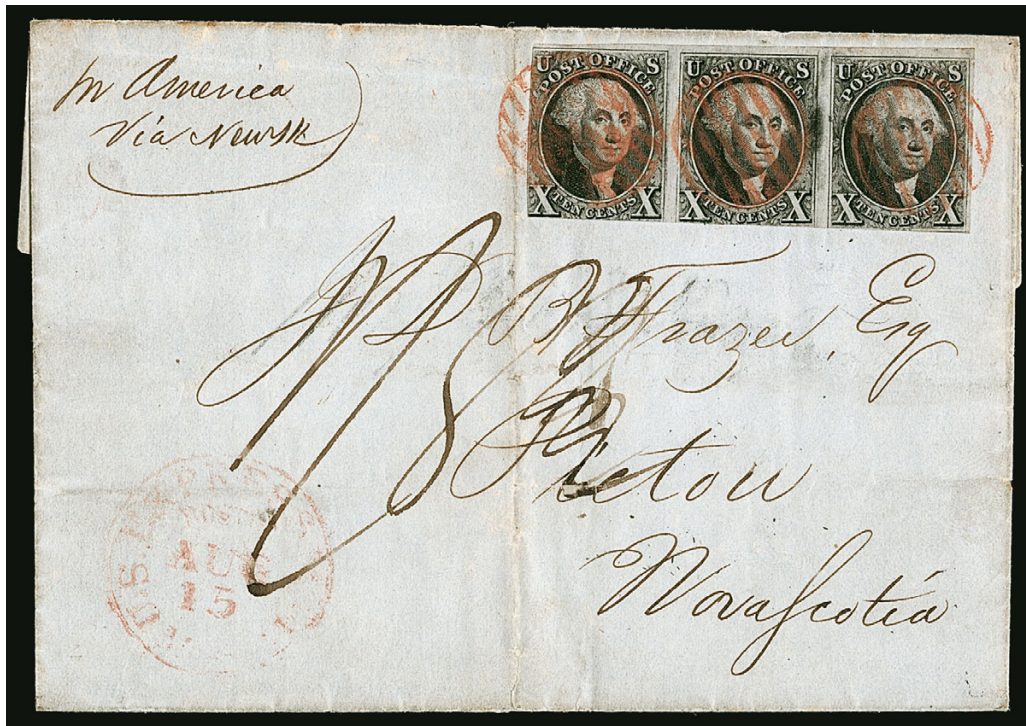 pr America
Via Newyk
U S
POST OFFICE
X TEN CENTS X
U S
POST OFFICE
X TEN CENTS X
U S
POST OFFICE
X TEN CENTS X
B Frazer, Esq
Pictou
Nova Scotia
U.S. EXPRESS MAIL
AUG
15